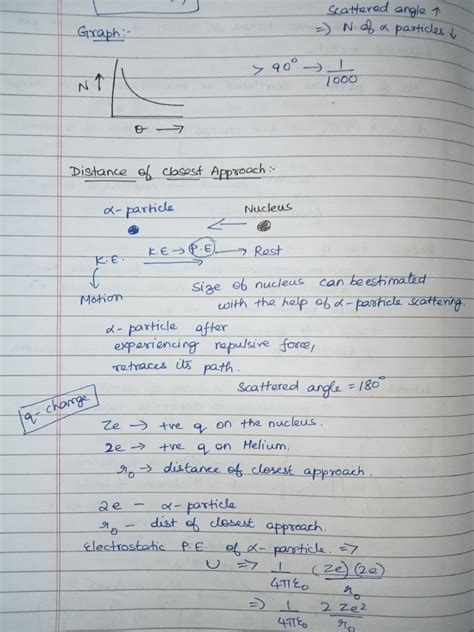 Scattered angle ↑
Graph:-
⇒ N. of α particles ↓
> 90° → 1/1000
N ↑
θ →
Distance of Closest Approach:-
α-particle Nucleus
←
K.E. K.E → P.E → Rest
↓
Motion
Size of nucleus can be estimated
with the help of α-particle scattering.
α-particle after
experiencing repulsive force,
retraces its path.
Scattered angle = 180°
q- charge
Ze → +ve q on the nucleus.
2e → +ve q on Helium.
r₀ → distance of closest approach.
2e - α-particle
r₀ - dist of closest approach.
Electrostatic P.E. of α-particle ⇒
U ⇒ 1/4πε₀ (Ze)(2e)/r₀
⇒ 1/4πε₀ 2Ze²/r₀